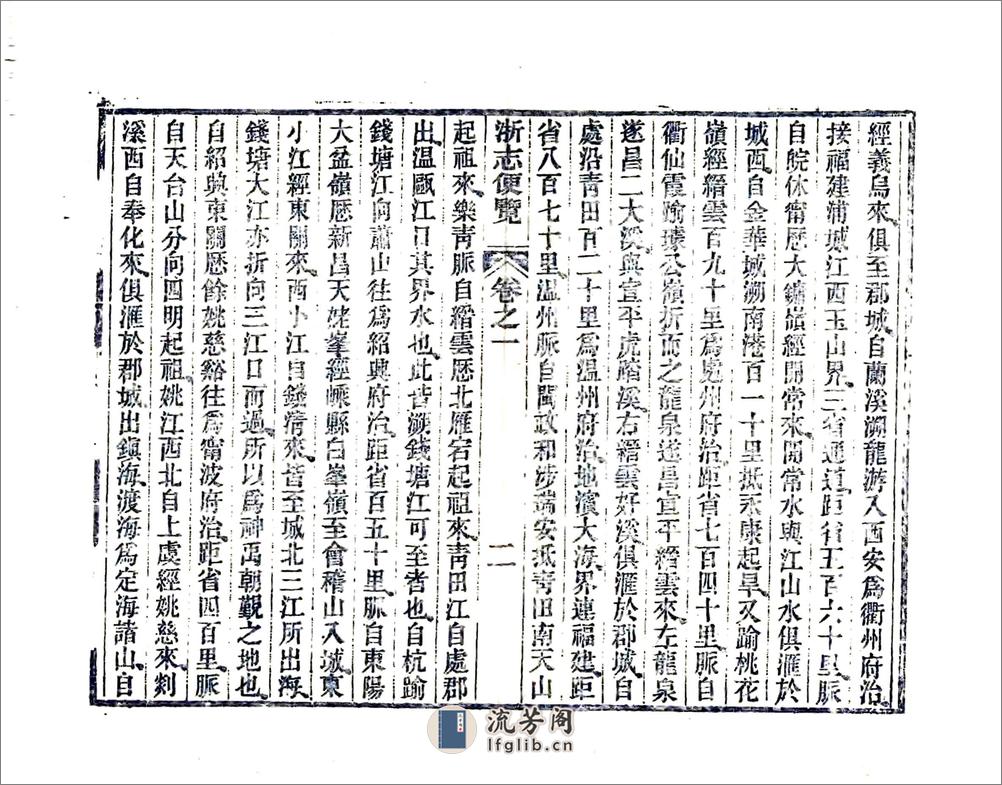 經義烏來俱至郡城自蘭溪溯龍游入西安爲衢州府治
接福建浦城江西玉山界三省通道距省五百六十里脈
自皖休甯歷大鏞嶺經開常來開常水與江山水俱滙於
城西自金華城溯南港百一十里抵永康起旱又踰桃花
嶺經縉雲百九十里爲處州府治距省七百四十里脈自
衢仙霞踰璩公嶺折而之龍泉遂昌宣平縉雲來左龍泉
遂昌二大溪與宣平虎踏溪右縉雲好溪俱滙於郡城自
處沿青田百二十里爲温州府治地濱大海界連福建距
省八百七十里温州脈自閩政和涉瑞安抵青田南天山
浙志便覽 卷之一 二
起祖來樂青脈自縉雲歷北雁宕起祖來青田江自處郡
出温甌江口其界水也此皆溯錢塘江可至者也自杭踰
錢塘江向蕭山往爲紹興府治距省百五十里脈自東陽
大盆嶺歷新昌天姥峯經嵊縣白峯嶺至會稽山入城東
小江經東關來西小江自錢清來皆至城北三江所出海
錢塘大江亦折向三江口而過所以爲神禹朝覲之地也
自紹興東關歷餘姚慈谿往爲甯波府治距省四百里脈
自天台山分向四明起祖姚江西北自上虞經姚慈來剡
溪西自奉化來俱滙於郡城出鎮海渡海爲定海諸山自
流芳阁
lfglib.cn